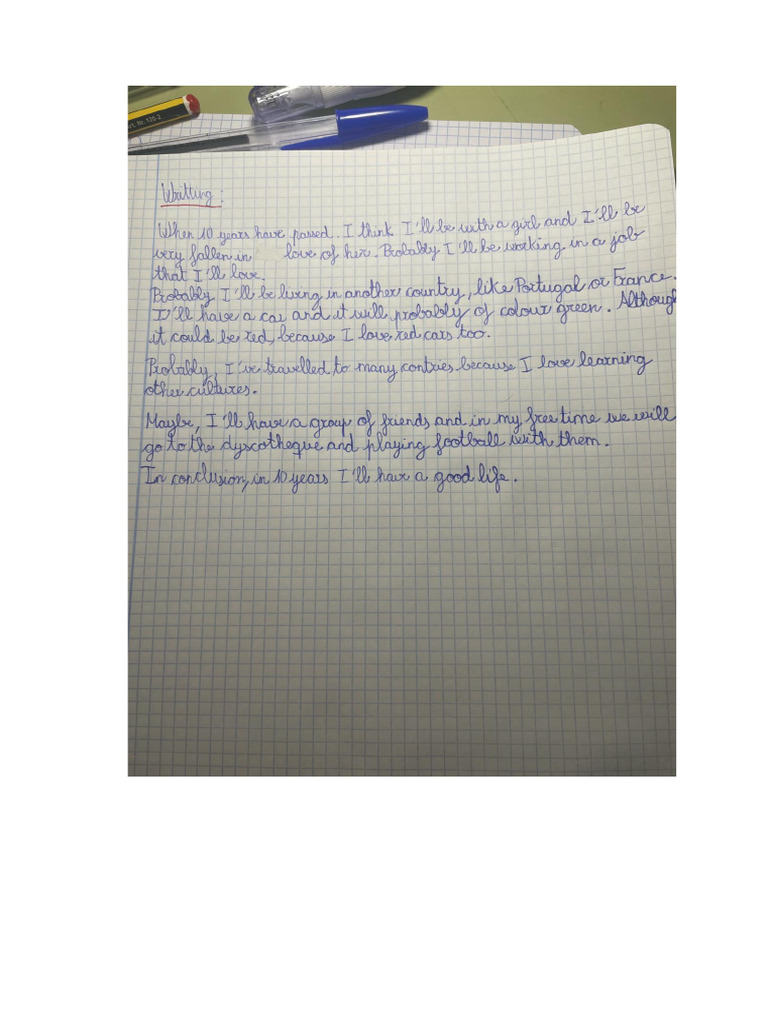 Nr. 135-2
Writting:
When 10 years have passed. I think I'll be with a girl and I'll be
very fallen in love of her. Probably I'll be working in a job
that I'll love.
Probably I'll be living in another country, like Portugal or France.
I'll have a car and it will probably of colour green. Although
it could be red, because I love red cars too.
Probably, I've travelled to many contries because I love learning
other cultures.
Maybe, I'll have a group of friends and in my free time we will
go to the dyscotheque and playing football with them.
In conclusion, in 10 years I'll have a good life.